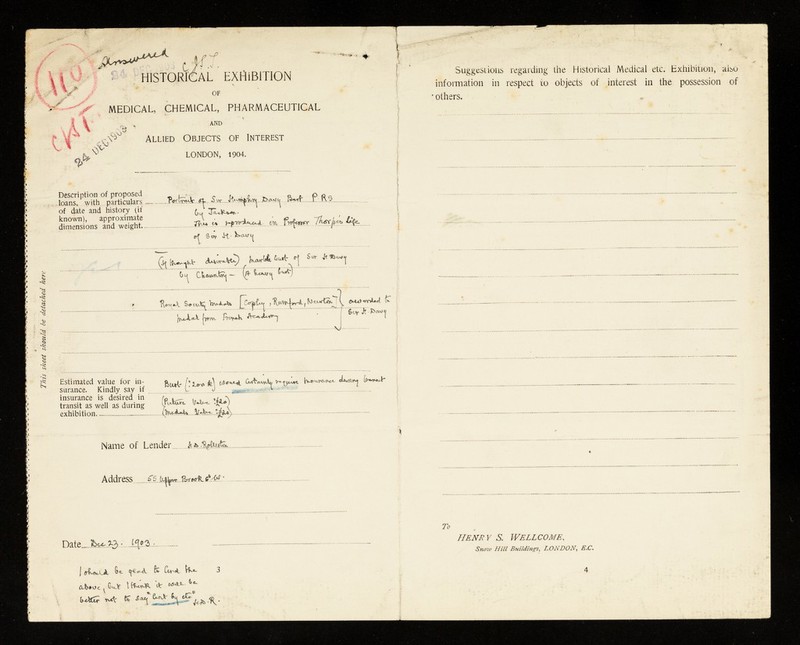 Answered
24 DEC 1903
110
HISTORICAL EXHIBITION
OF
MEDICAL, CHEMICAL, PHARMACEUTICAL
AND
ALLIED OBJECTS OF INTEREST
LONDON, 1904.
24 DEC 1903
Description of proposed
loans, with particulars
of date and history (if
known), approximate
dimensions and weight.
Portrait of Sir Humphry Davy Bart P.R.S
by Jackson.
This is reproduced in Professor Thorpe's Life
of Sir H. Davy
(If thought desirable) marble bust of Sir H Davy
by Chantrey — (A heavy bust)
Royal Society Medals [Copley, Rumford,
medal from French Academy
awarded to
Sir H. Davy
This sheet should be detached here
Estimated value for in-
surance. Kindly say if
insurance is desired in
transit as well as during
exhibition.
Bust (? 200 £) would certainly require insurance during transit
(Picture Value ?£20)
(Medals Value ?£20)
Name of Lender H. D. Rolleston
Address 55 Upper Brook St W.
Date Dec 23. 1903.
I should be glad to lend the
above, but I think it would be
better not to say "lent by etc"
H.D.R.
3
Suggestions regarding the Historical Medical etc. Exhibition, also
information in respect to objects of interest in the possession of
others.
To
HENRY S. WELLCOME,
Snow Hill Buildings, LONDON, E.C.
4